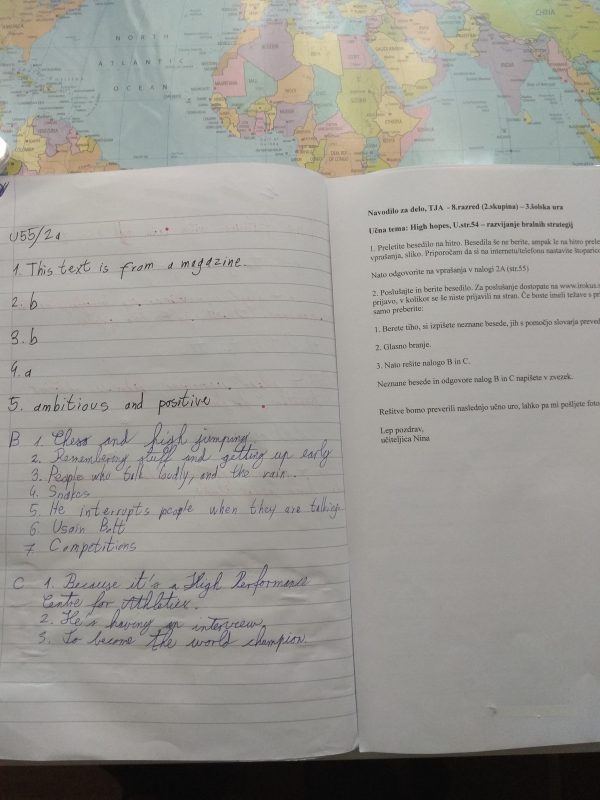 NORTH
ATLANTIC
OCEAN
CHINA
INDIA
ALGERIA
MALI
NIGER
SUDAN
ETHIOPIA
MAURITANIA
VENEZUELA
COLOMBIA
U55/2a
1. This text is from a magazine.
2. b
3. b
4. a
5. ambitious and positive
B 1. Chess and high jumping.
2. Remembering stuff and getting up early
3. People who talk loudly, and the rain..
4. Snakes
5. He interrupts people when they are talking.
6. Usain Bolt
7. Competitions
C 1. Because it's a High Performance
Centre for Athletics.
2. He's having an interview.
3. To become the world champion.
Navodilo za delo, TJA - 8.razred (2.skupina) – 3.šolska ura
Učna tema: High hopes, U.str.54 – razvijanje bralnih strategij
1. Preletite besedilo na hitro. Besedila še ne berite, ampak le na hitro
vprašanja, sliko. Priporočam da si na internetu/telefonu nastavite
Nato odgovorite na vprašanja v nalogi 2A (str.55)
2. Poslušajte in berite besedilo. Za poslušanje dostopate na
prijavo, v kolikor se še niste prijavili na stran. Če boste imeli težave s
samo preberite:
1. Berete tiho, si izpišete neznane besede, jih s pomočjo slovarja
2. Glasno branje.
3. Nato rešite nalogo B in C.
Neznane besede in odgovore nalog B in C napišete v zvezek.
Rešitve bomo preverili naslednjo učno uro, lahko pa mi pošljete
Lep pozdrav,
učiteljica Nina